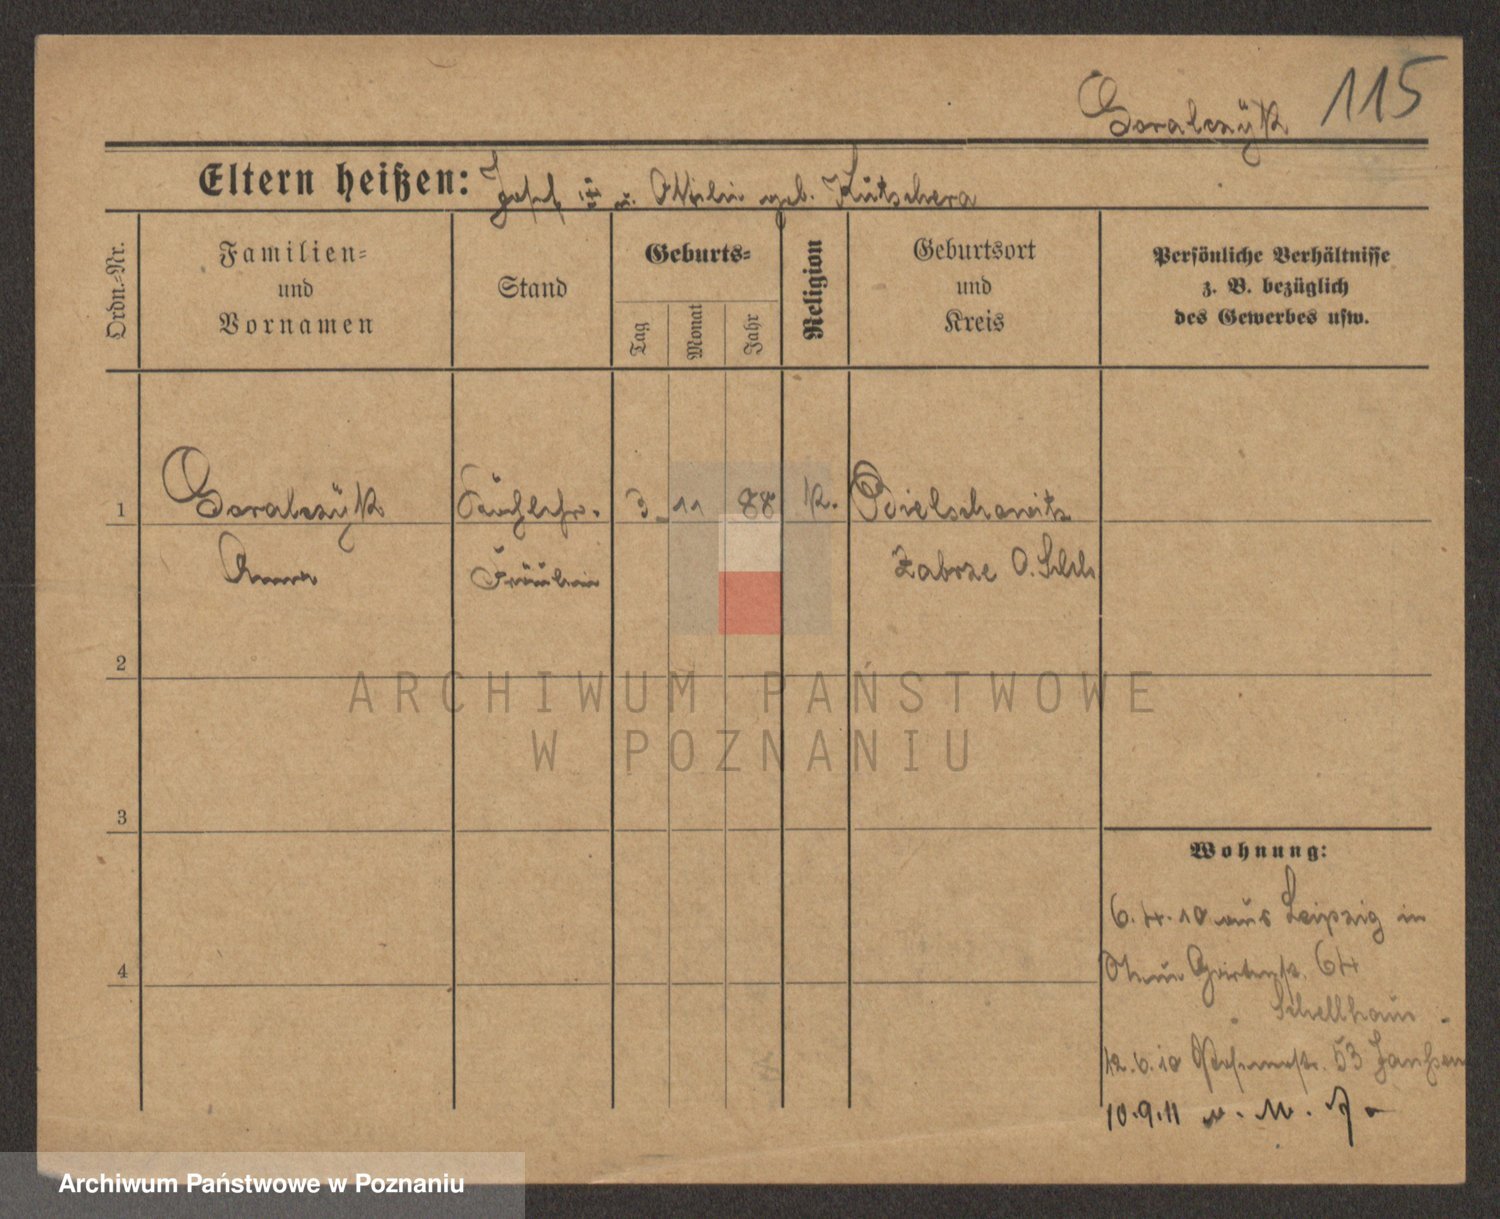 Goralczük 115
Eltern heißen: Josef u. Ottilie geb. Kutschera
Ordn.=Nr.
Familien=
und
Vornamen
Stand
Geburts=
Tag
Monat
Jahr
Religion
Geburtsort
und
Kreis
Persönliche Verhältnisse
z. B. bezüglich
des Gewerbes usw.
1 Goralczük 3. 11 88 k. Bielschowitz
Anna Fräulein Zabrze O. Schls
2
3
4
Wohnung:
6.4.10 aus Leipzig in
64
Schellhaus
12.6.10 53 Janssen
10.9.11 n. M.
ARCHIWUM PAŃSTWOWE
W POZNANIU
Archiwum Państwowe w Poznaniu